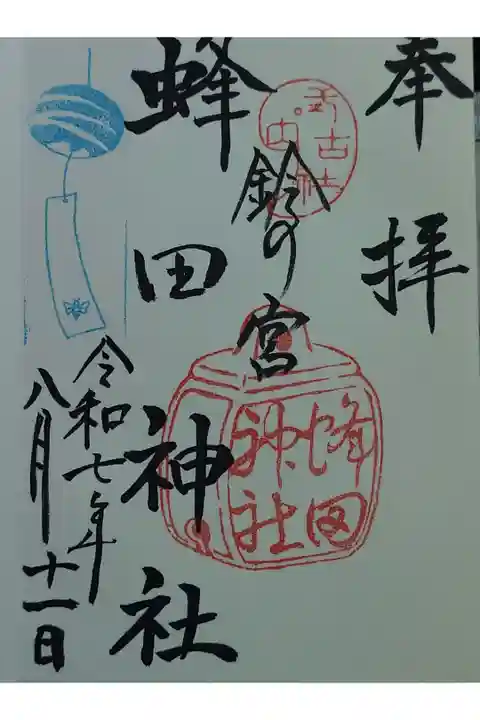 奉拝
鈴の宮
蜂田神社
令和七年
八月十一日
式内古社
蜂田
神社